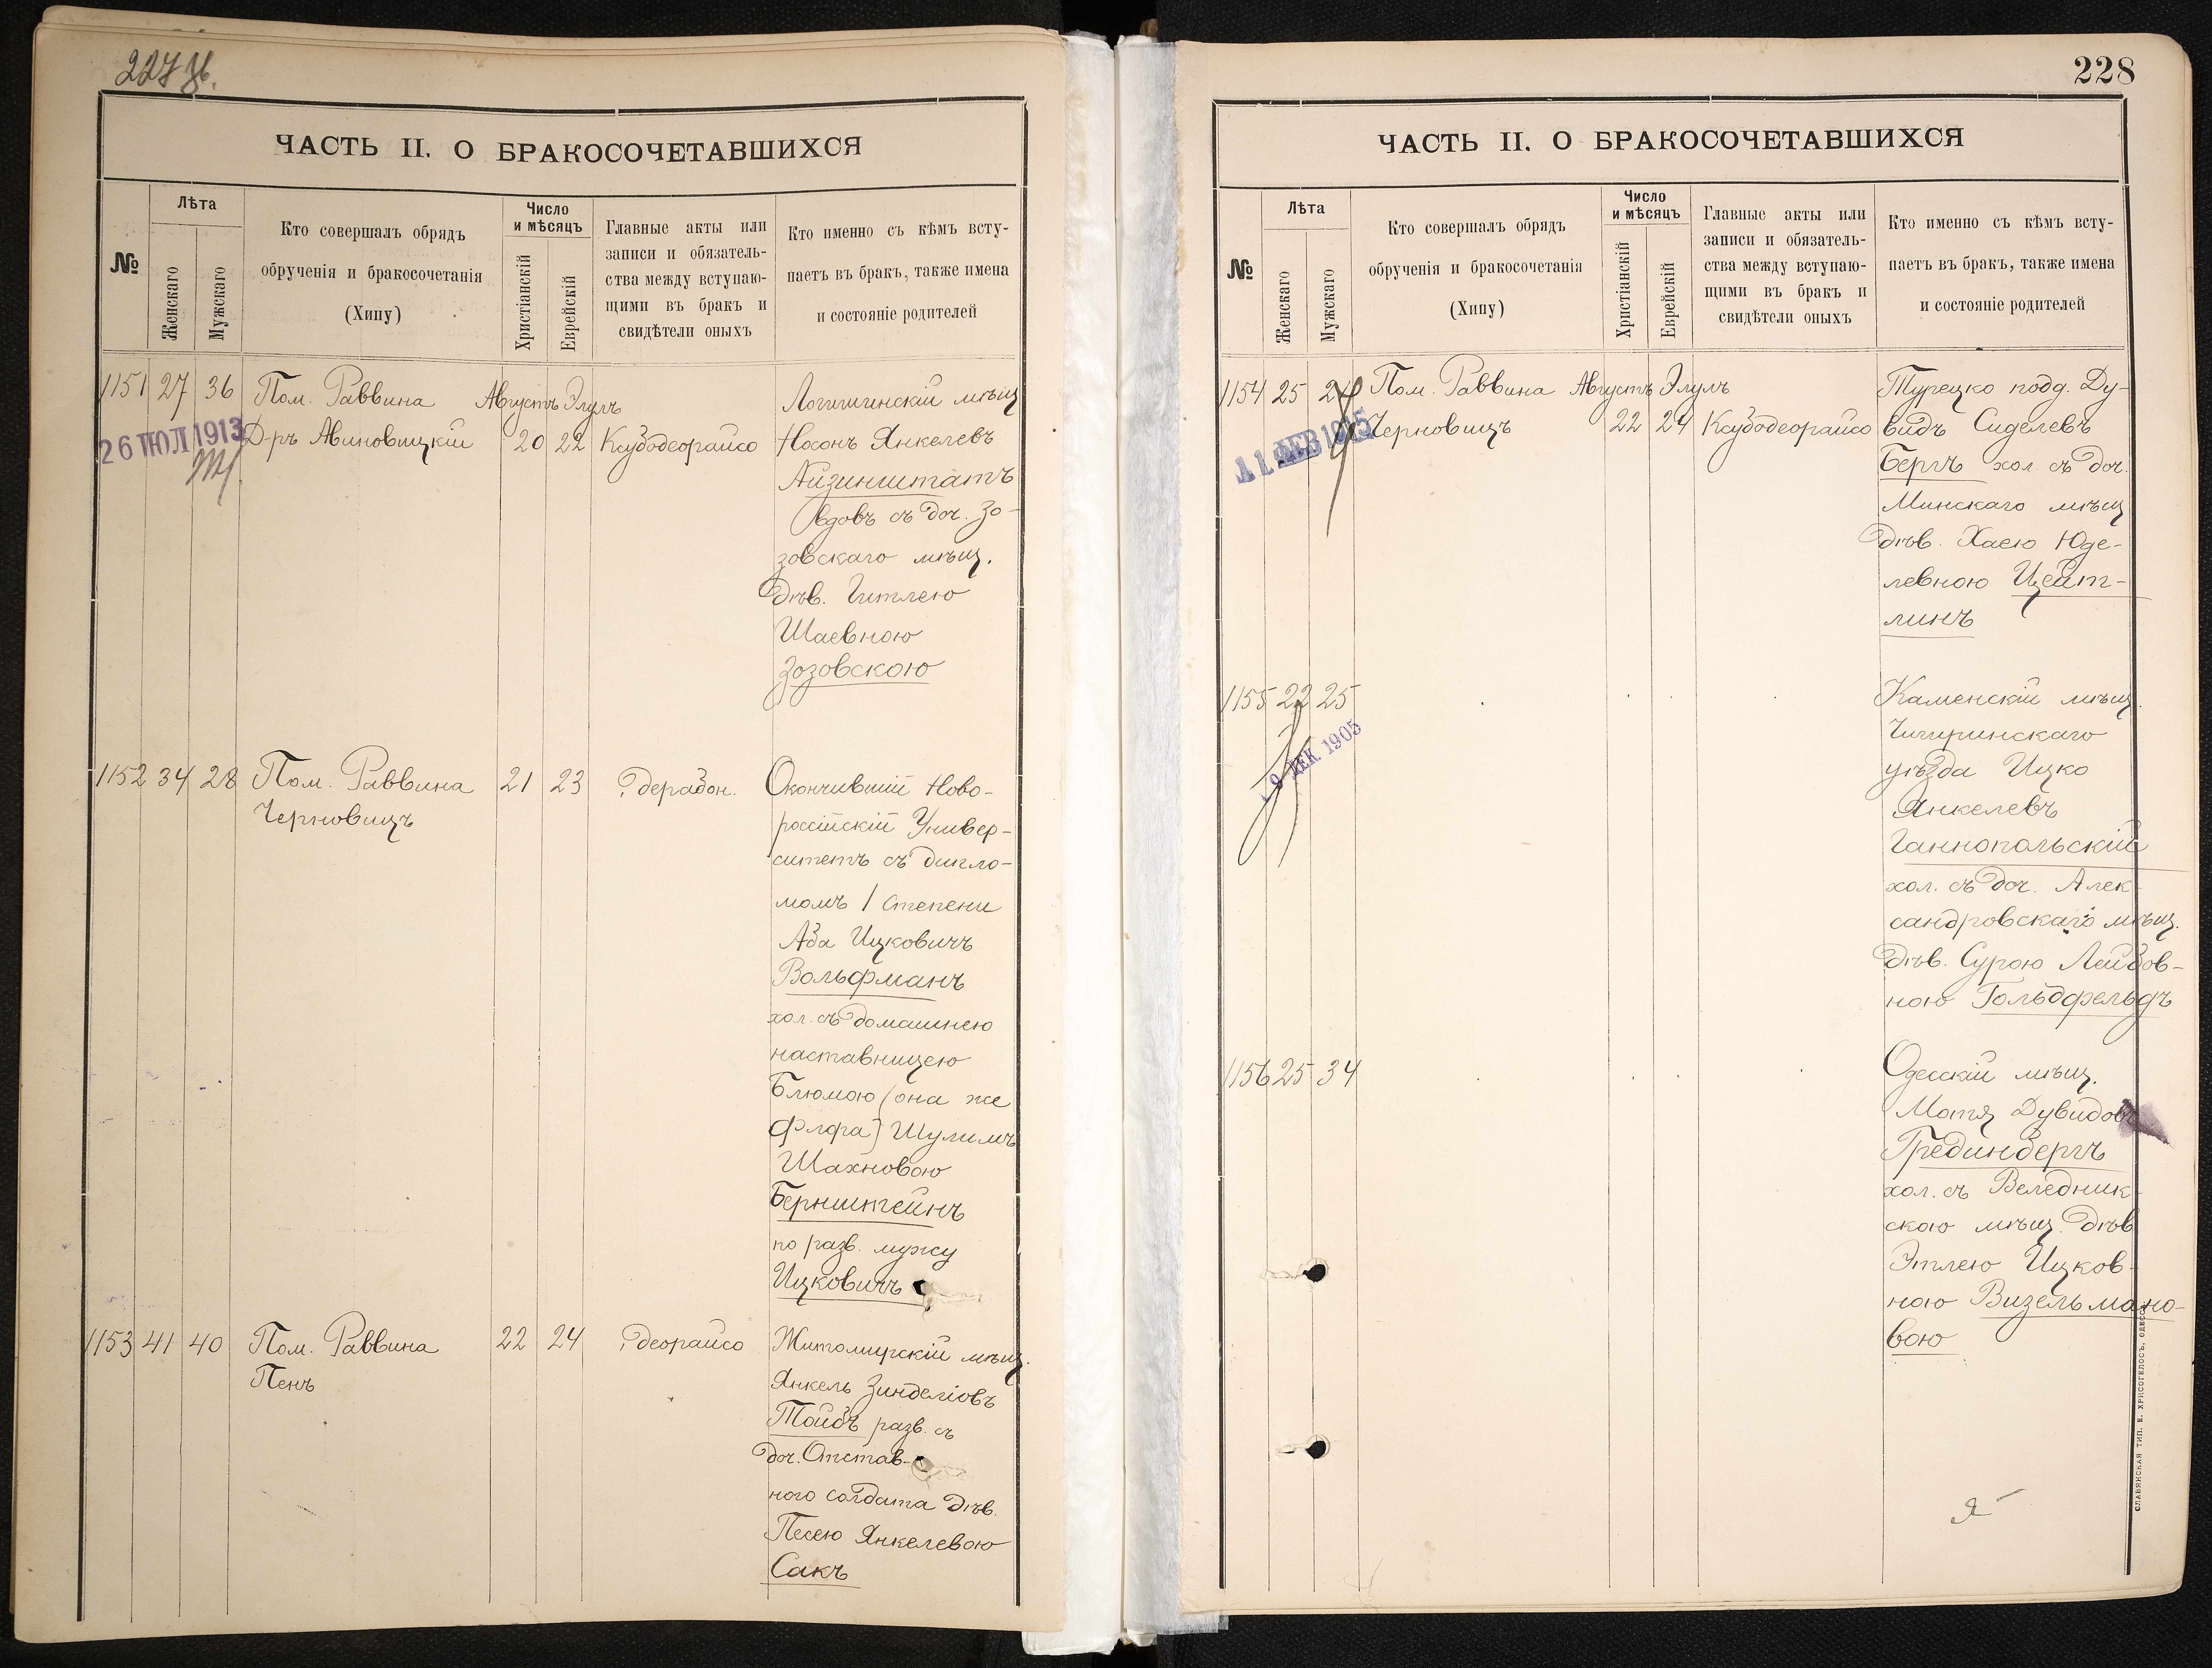 227 Зб.
ЧАСТЬ II. О БРАКОСОЧЕТАВШИХСЯ
№
Лѣта
Женскаго
Мужскаго
Кто совершалъ обрядъ
обрученія и бракосочетанія
(Хипу)
Число
и мѣсяцъ
Христіанскій
Еврейскій
Главные акты или
записи и обязатель-
ства между вступаю-
щими въ бракъ и
свидѣтели оныхъ
Кто именно съ кѣмъ всту-
паетъ въ бракъ, также имена
и состояніе родителей
1151 27 36 Пом. Раввина Августъ Элулъ
Д-ръ Авиновицкій 20 22 Ксубодеорайсо
26 ІЮЛ 1913
Логишинскій мѣщ
Носонъ Янкелевъ
Айзинштатъ
вдовъ съ доч. Зо-
зовскаго мѣщ.
дѣв. Гитлею
Шаевною
Зозовскою
1152 34 28 Пом. Раввина 21 23 дерабон.
Черновицъ
Окончившій Ново-
россійскій Универ-
ситетъ съ дипло-
момъ 1 степени
Аба Ицковичъ
Вольфманъ
хол. съ домашнею
наставницею
Блюмою (она же
Флфа) Шулимъ
Шахновою
Бернштейнъ
по разв. мужу
Ицковичъ
1153 41 40 Пом. Раввина 22 24 деорайсо
Пенъ
Житомирскій мѣщ.
Янкель Зинделіовъ
Тойбъ разв. съ
доч. Отстав-
ного солдата дѣв.
Песею Янкелевою
Сакъ
228
ЧАСТЬ II. О БРАКОСОЧЕТАВШИХСЯ
№
Лѣта
Женскаго
Мужскаго
Кто совершалъ обрядъ
обрученія и бракосочетанія
(Хипу)
Число
и мѣсяцъ
Христіанскій
Еврейскій
Главные акты или
записи и обязатель-
ства между вступаю-
щими въ бракъ и
свидѣтели оныхъ
Кто именно съ кѣмъ всту-
паетъ въ бракъ, также имена
и состояніе родителей
1154 25 Пом. Раввина Августъ Элулъ
Черновицъ 22 24 Ксубодеорайсо
11 ФЕВ 1915
Турецко подд. Ду-
видъ Сиделевъ
Бергъ хол. съ доч.
Минскаго мѣщ
дѣв. Хаею Юде-
левною Цейт-
линъ
1155 22 25
9 ДЕК 1905
Каменскій мѣщ.
Чигиринскаго
уѣзда Ицко
Янкелевъ
Ганнопольскій
хол. съ доч. Алек-
сандровскаго мѣщ.
дѣв. Сурою Лейзов-
ною Гольдфельдъ
1156 25 34
Одесскій мѣщ.
Мотя Дувидовъ
Грединбергъ
хол. съ Веледник-
скою мѣщ. дѣв
Этлею Ицков-
ною Визельмано-
вою
СЛАВЯНСКАЯ ТИП. Е. ХРИСОГЕЛОСЪ, ОДЕССА